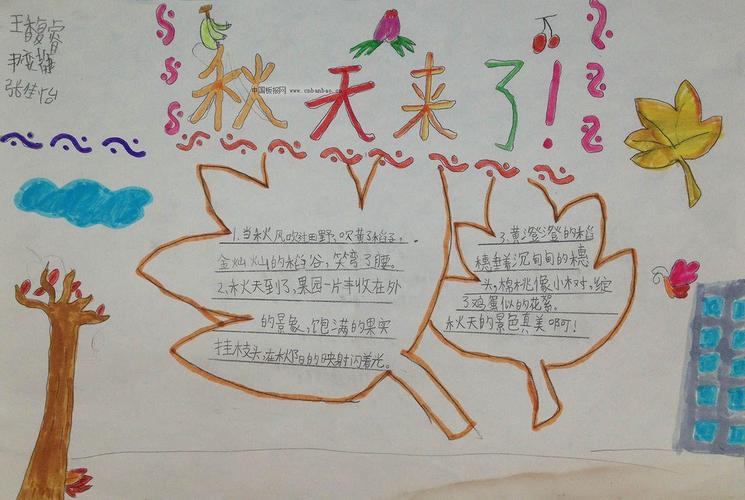 张佳怡
秋天来了!
中国板报网 www.cnbanbao.cn
1.当秋风吹对田野,吹黄了稻子。
金灿灿的稻谷,笑弯了腰。
2.秋天到了,果园一片丰收在外
的景象,饱满的果实
挂枝头,在秋阳的映射闪着光。
3.黄澄澄的稻
穗垂着沉甸甸的穗
头,棉桃像小木对,绽
了鸡蛋似的花絮。
秋天的景色真美啊!